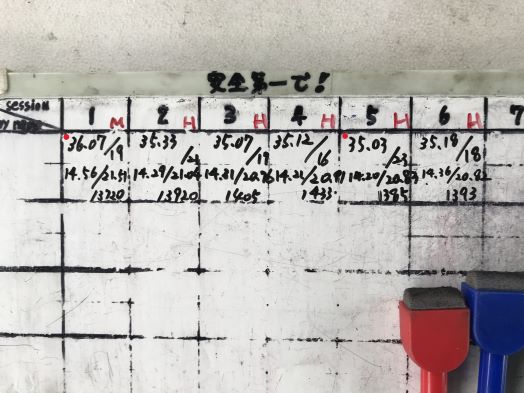 安全第一で！
session 1 M 2 H 3 H 4 H 5 H 6 H 7
36.07/19 35.33/21 35.07/19 35.12/16 35.03/23 35.18/18
14.56/21.51 14.29/21.04 14.31/20.76 14.21/20.91 14.20/20.83 14.36/20.82
13920 1405 1433 1395 1393